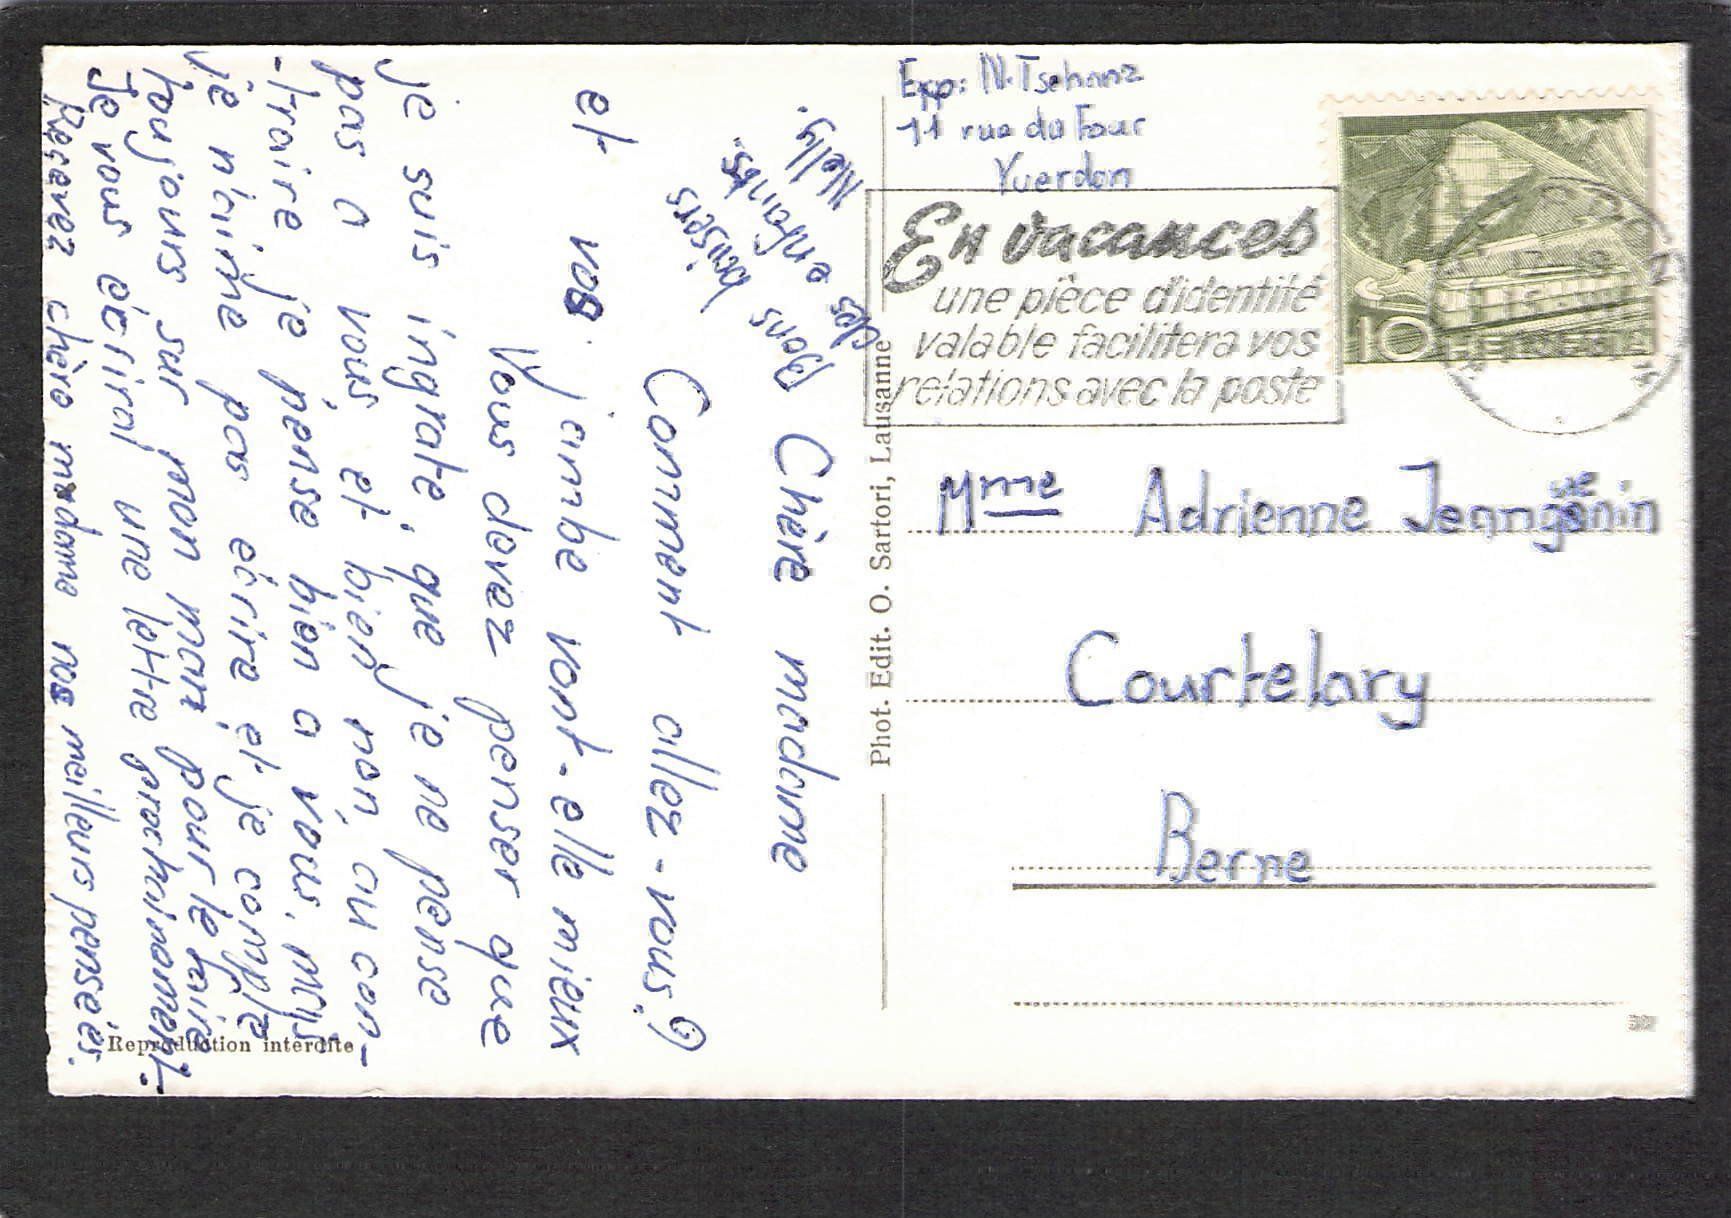 Exp: N. Tschanz
11 rue du Four
Yverdon
En vacances
une pièce d'identité
valable facilitera vos
relations avec la poste
10 HELVETIA
Mme Adrienne
Courtelary
Berne
Phot. Edit. O. Sartori, Lausanne
Reproduction interdite
Chère madame
Comment allez-vous?
et vos jambe vont-elle mieux
Vous devez penser que
je suis ingrate, que je ne pense
pas a vous et bien non, au con-
-traire je pense bien a vous, mais
je n'aime pas écrire et je compte
toujours sur mon mari pour le faire
Je vous écrirai une lettre prochainement.
Recevez chère madame nos meilleurs pensées.
Bons baisers
des enfants.
Nelly.